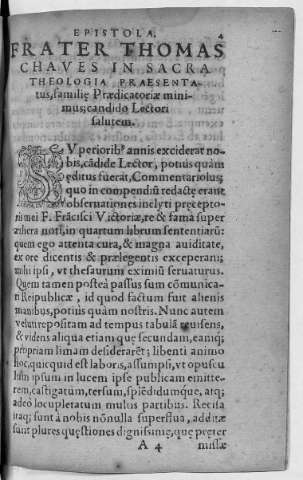 EPISTOLA. 4
FRATER THOMAS
CHAVES IN SACRA
THEOLOGIA PRAESENTA-
tus, familię Prædicatoriæ mini-
mus, candido Lectori
salutem.
SVperiorib⁹ annis exciderat no-
bis, cãdide Lector, potius quàm
editus fuerat, Commentariolus,
quo in compendiũ redactę erant
obseruationes inclyti prẹcepto-
ris mei F. Frãcisci Victoriæ, re & fama super
æthera noti, in quartum librum sententiarũ:
quem ego attenta cura, & magna auiditate,
ex ore dicentis & prælegentis exceperam;
mihi ipsi, vt thesaurum eximiũ seruaturus.
Quem tamen posteà passus sum cõmunica-
ri Reipublicæ, id quod factum fuit alienis
manibus, potius quàm nostris. Nunc autem
velut repositam ad tempus tabulã reuisens,
& videns aliqua etiam quę secundam, eamq́;
propriam limam desiderarẽt; libenti animo
hoc, quicquid est laboris, assumpsi, vt opuscu
lum ipsum in lucem ipse publicam emitte-
rem, castigatum, tersum, splẽdidumque, atq;
adeò locupletatum multis partibus. Recisa
itaq; sunt à nobis nõnulla superflua, additæ
sunt plures quęstiones dignissimę, quę pręter
A 4 missæ